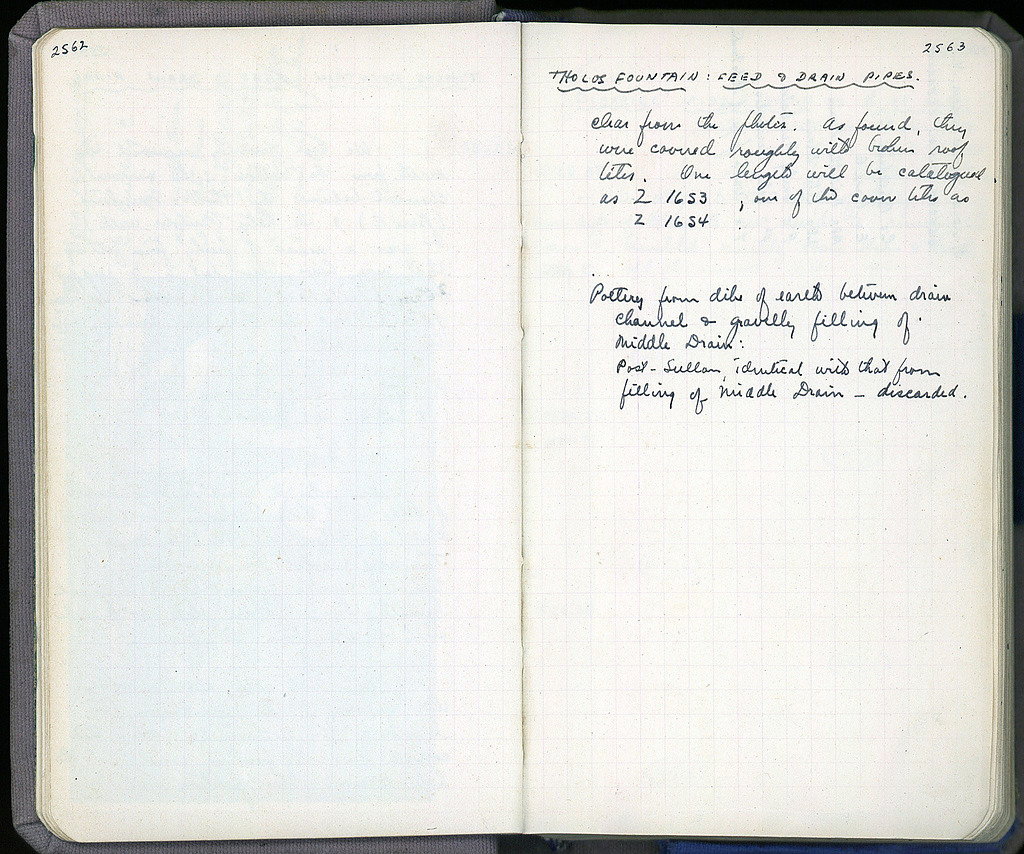 2562
2563
THOLOS FOUNTAIN: FEED & DRAIN PIPES.
clear from the photos. As found, they
were covered roughly with broken roof
tiles. One length will be catalogued
as Z 1653 , one of the cover tiles as
Z 1654 .
Pottery from dike of earth between drain
channel & gravelly filling of
Middle Drain:
Post-Sullan, identical with that from
filling of Middle Drain – discarded.